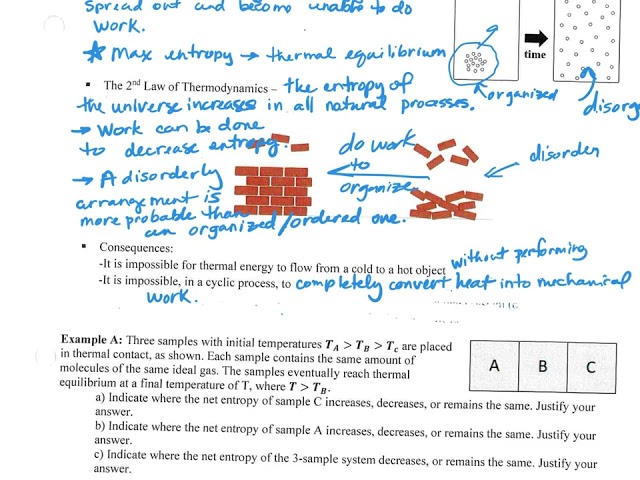 spread out and become unable to do
work.
* Max entropy → thermal equilibrium
time
organized
▪ The 2nd Law of Thermodynamics – the entropy of
the universe increases in all natural processes.
disorg
→ Work can be done
to decrease entropy.
do work
to
organize
disorder
→ A disorderly
arrangement is
more probable than
an organized/ordered one.
▪ Consequences:
-It is impossible for thermal energy to flow from a cold to a hot object without performing
-It is impossible, in a cyclic process, to completely convert heat into mechanical
work.
Example A: Three samples with initial temperatures T_A > T_B > T_c are placed
in thermal contact, as shown. Each sample contains the same amount of
molecules of the same ideal gas. The samples eventually reach thermal
equilibrium at a final temperature of T, where T > T_B.
A B C
a) Indicate where the net entropy of sample C increases, decreases, or remains the same. Justify your
answer.
b) Indicate where the net entropy of sample A increases, decreases, or remains the same. Justify your
answer.
c) Indicate where the net entropy of the 3-sample system decreases, or remains the same. Justify your
answer.